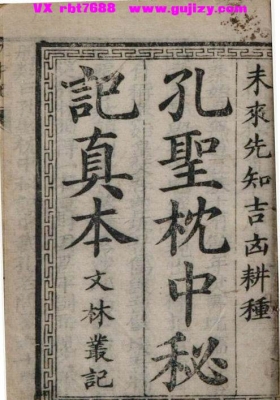 VX rbt7688 www.gujizy.com
未來先知吉凶耕種
孔聖枕中秘
記真本
文林叢記